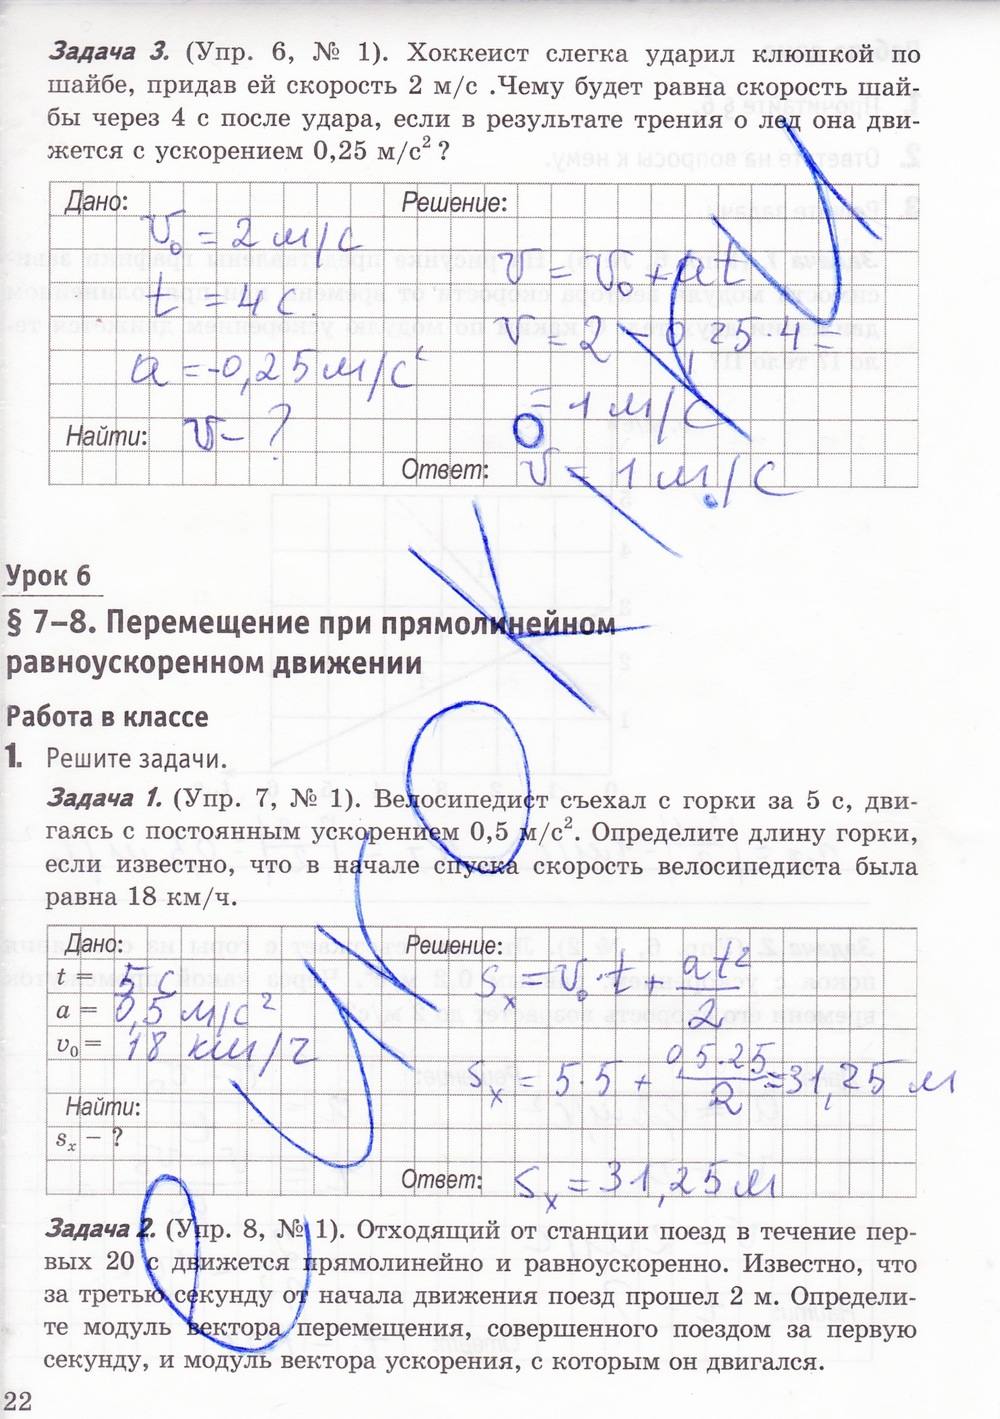 Задача 3. (Упр. 6, № 1). Хоккеист слегка ударил клюшкой по
шайбе, придав ей скорость 2 м/с .Чему будет равна скорость шай-
бы через 4 с после удара, если в результате трения о лед она дви-
жется с ускорением 0,25 м/с² ?
Дано:
v₀ = 2 м/с
t = 4 с
a = -0,25 м/с²
Найти: v - ?
Решение:
v = v₀ + at
v = 2 - 0,25·4 =
= 1 м/с
Ответ: v = 1 м/с
Урок 6
§ 7–8. Перемещение при прямолинейном
равноускоренном движении
Работа в классе
1. Решите задачи.
Задача 1. (Упр. 7, № 1). Велосипедист съехал с горки за 5 с, дви-
гаясь с постоянным ускорением 0,5 м/с². Определите длину горки,
если известно, что в начале спуска скорость велосипедиста была
равна 18 км/ч.
Дано:
t = 5 с
a = 0,5 м/с²
v₀ = 18 км/ч
Найти:
sₓ – ?
Решение:
sₓ = v₀·t + at²/2
sₓ = 5·5 + 0,5·25/2 = 31,25 м
Ответ: sₓ = 31,25 м
Задача 2. (Упр. 8, № 1). Отходящий от станции поезд в течение пер-
вых 20 с движется прямолинейно и равноускоренно. Известно, что
за третью секунду от начала движения поезд прошел 2 м. Определи-
те модуль вектора перемещения, совершенного поездом за первую
секунду, и модуль вектора ускорения, с которым он двигался.
22